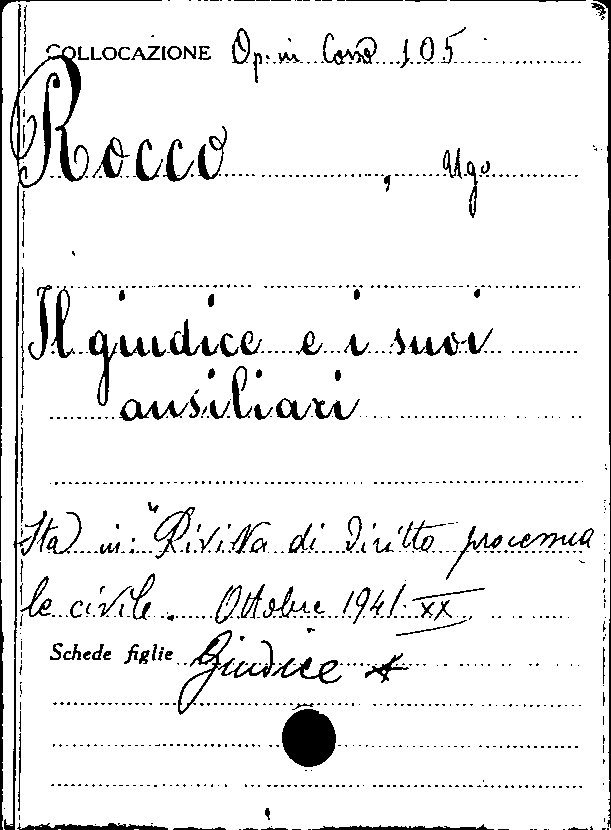 COLLOCAZIONE Op. in Casso 105
Rocco, Ugo
Il giudice e i suoi
ausiliari
Sta in: "Rivista di Diritto processua
le civile. Ottobre 1941. XX
Schede figlie Giudice